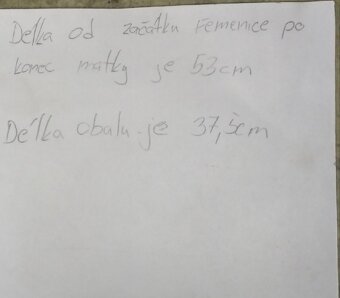 Delka od začátku Femenice po
konec matky je 53cm
Délka obalu je 37,5cm